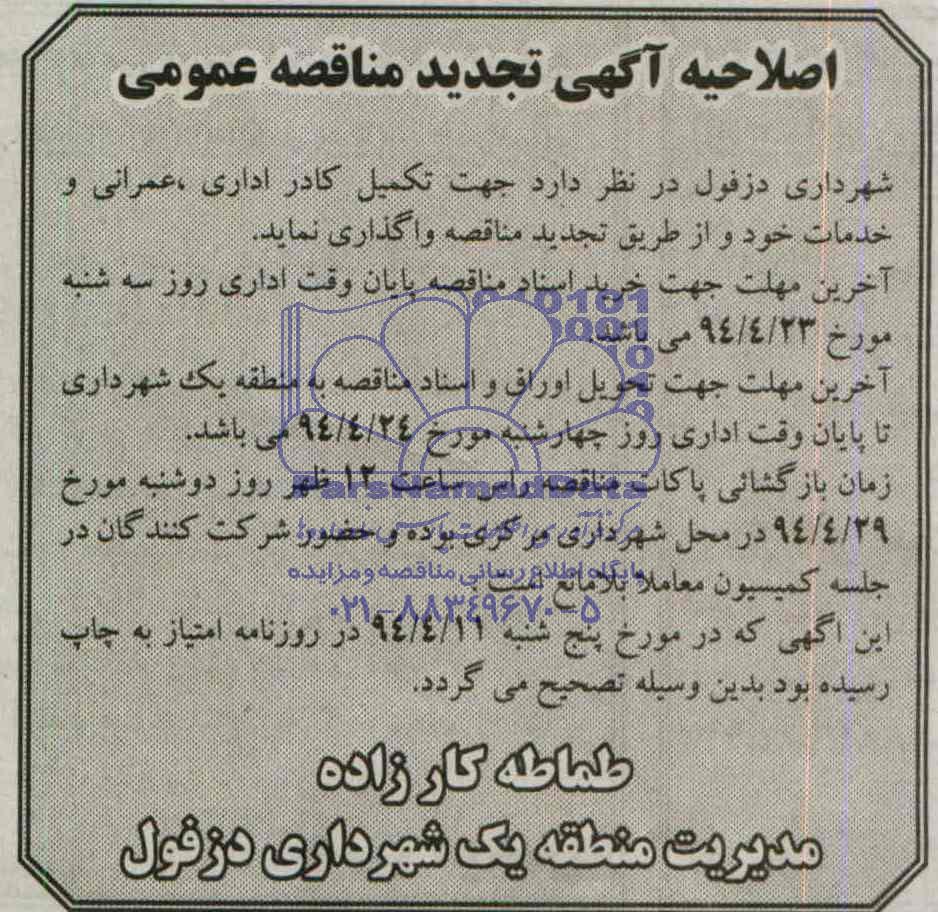 اصلاحیه آگهی تجدید مناقصه عمومی
شهرداری دزفول در نظر دارد جهت تکمیل کادر اداری ،عمرانی و
خدمات خود و از طریق تجدید مناقصه واگذاری نماید.
آخرین مهلت جهت خرید اسناد مناقصه پایان وقت اداری روز سه شنبه
مورخ ۹٤/٤/۲۳ می باشد.
آخرین مهلت جهت تحویل اوراق و اسناد مناقصه به منطقه یک شهرداری
تا پایان وقت اداری روز چهارشنبه مورخ ۹٤/٤/۲٤ می باشد.
زمان بازگشائی پاکات مناقصه راس ساعت ۱۲ ظهر روز دوشنبه مورخ
۹٤/٤/۲۹ در محل شهرداری مرکزی بوده و حضور شرکت کنندگان در
جلسه کمیسیون معاملا بلامانع است.
این آگهی که در مورخ پنج شنبه ۹٤/٤/۱۱ در روزنامه امتیاز به چاپ
رسیده بود بدین وسیله تصحیح می گردد.
طماطه کار زاده
مدیریت منطقه یک شهرداری دزفول
ParsNamadData
پایگاه اطلاع رسانی مناقصه و مزایده
۰۲۱-۸۸۳٤۹٦۷۰-۵